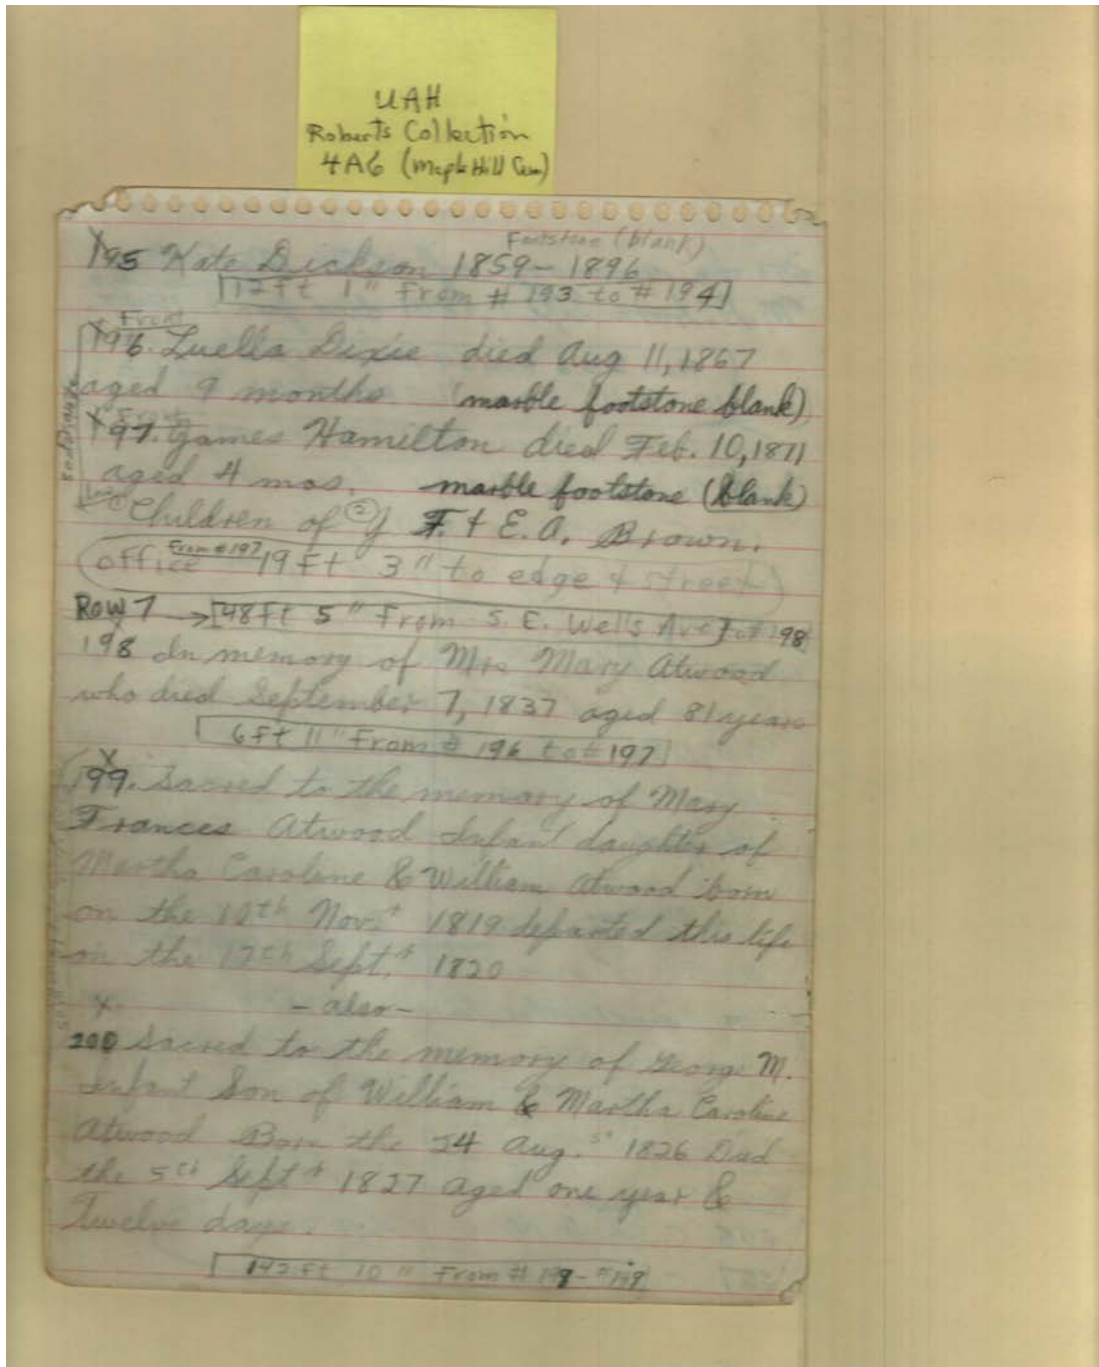 UAH
Roberts Collection
4A6 (Maple Hill Cem)
Footstone (blank)
195 Kate Dickson 1859-1896
[12 ft 1" From # 193 to # 194]
Front
196. Luella Dixie died Aug 11, 1867
aged 9 months (marble footstone blank)
Front
197. James Hamilton died Feb. 10, 1871
aged 4 mos. marble footstone (blank)
Children of ② J F. & E. A. Brown.
From #197
(office 19 ft 3" to edge of street)
Row 7 → [48 ft 5" From S. E. Wells Ave] to # 198
198 In memory of Mrs Mary Atwood
who died September 7, 1837 aged 81 years
[6 ft 11" From # 196 to # 197]
199. Sacred to the memory of Mary
Frances Atwood Infant daughter of
Martha Caroline & William Atwood born
on the th Nov. 1819 departed this life
on the 17th Sept. 1820
- also -
200 Sacred to the memory of George M.
Infant Son of William & Martha Caroline
Atwood Born the 24 Aug. st 1826 Died
the 5th Sept 1827 aged one year &
Twelve days.
10" From #